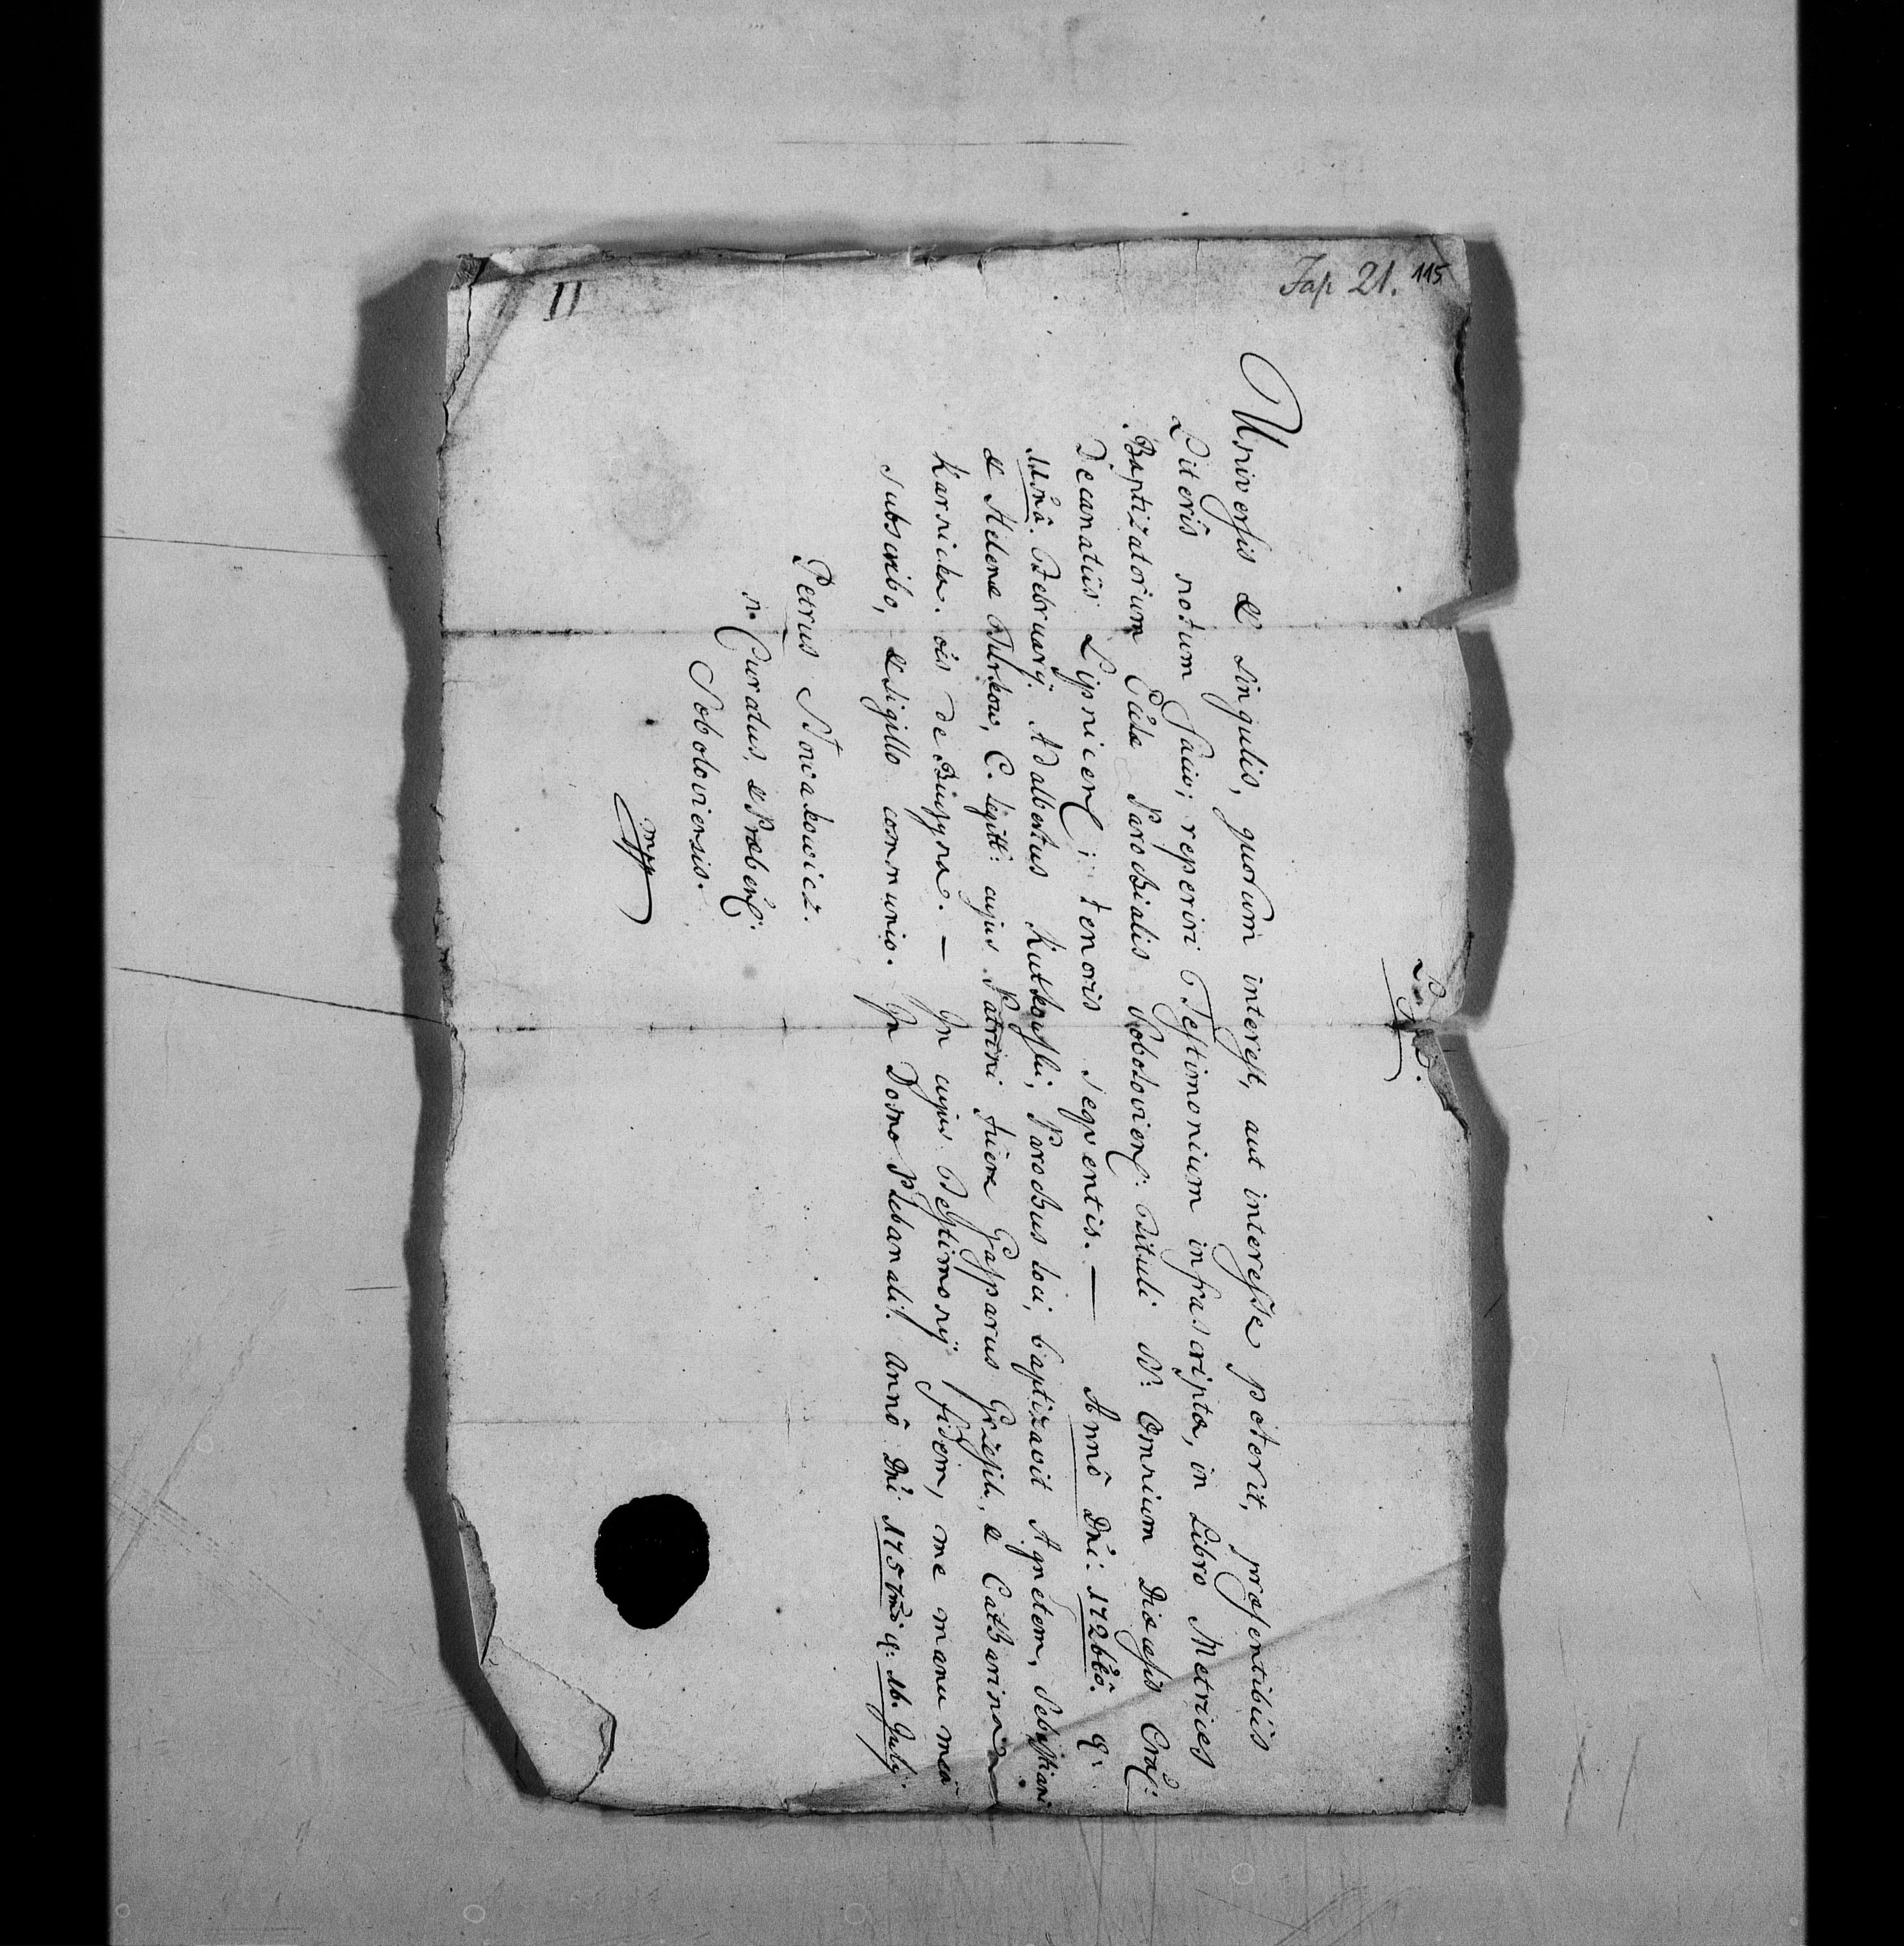 Fap 21. 115
II
Universis & singulis, quorum interest, aut interesse poterit, præsentibus
Literis notum facio; reperiri Testimonium infrascripta, in Libro Metrices
Baptizatorum Parochialis Sobolovien: Tituli Omnium Diæcesis
Decanatûs Lipnicen: tenoris seqventis. — Annô Dni: q:
Februarij. Adalbertus Kutkowski, Parochus loci, baptizavit Agnetem, Sebastiani
& Helenæ C. legitt: cujus Patrini fuere Gasparus & Catharina
Karnicka. de — In cujus Testimonij fidem, me manu meâ
subscribo, & sigillo communio. In Domo Plebanali. Annô Dni q: 16. Julij.
Petrus Nowakowicz.
Curatus, & Præben:
Soboloviensis.
mpp